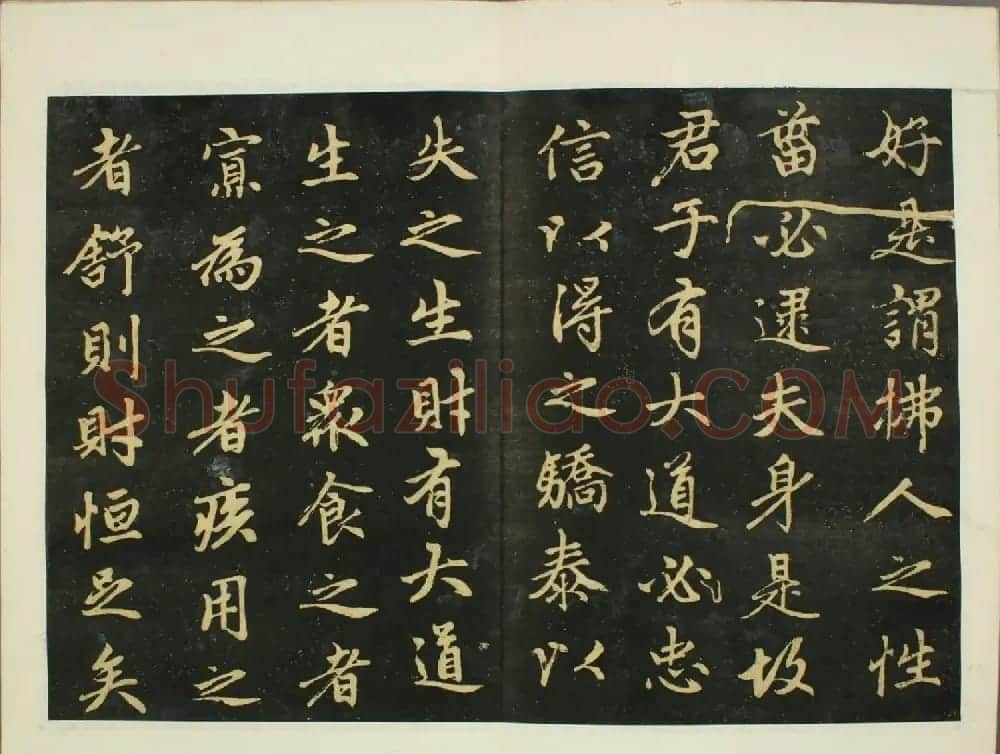 好是謂拂人之性
菑必逮夫身是故
君子有大道必忠
信以得之驕泰以
失之生財有大道
生之者眾食之者
寡為之者疾用之
者舒則財恒足矣
Shufaziliao.COM